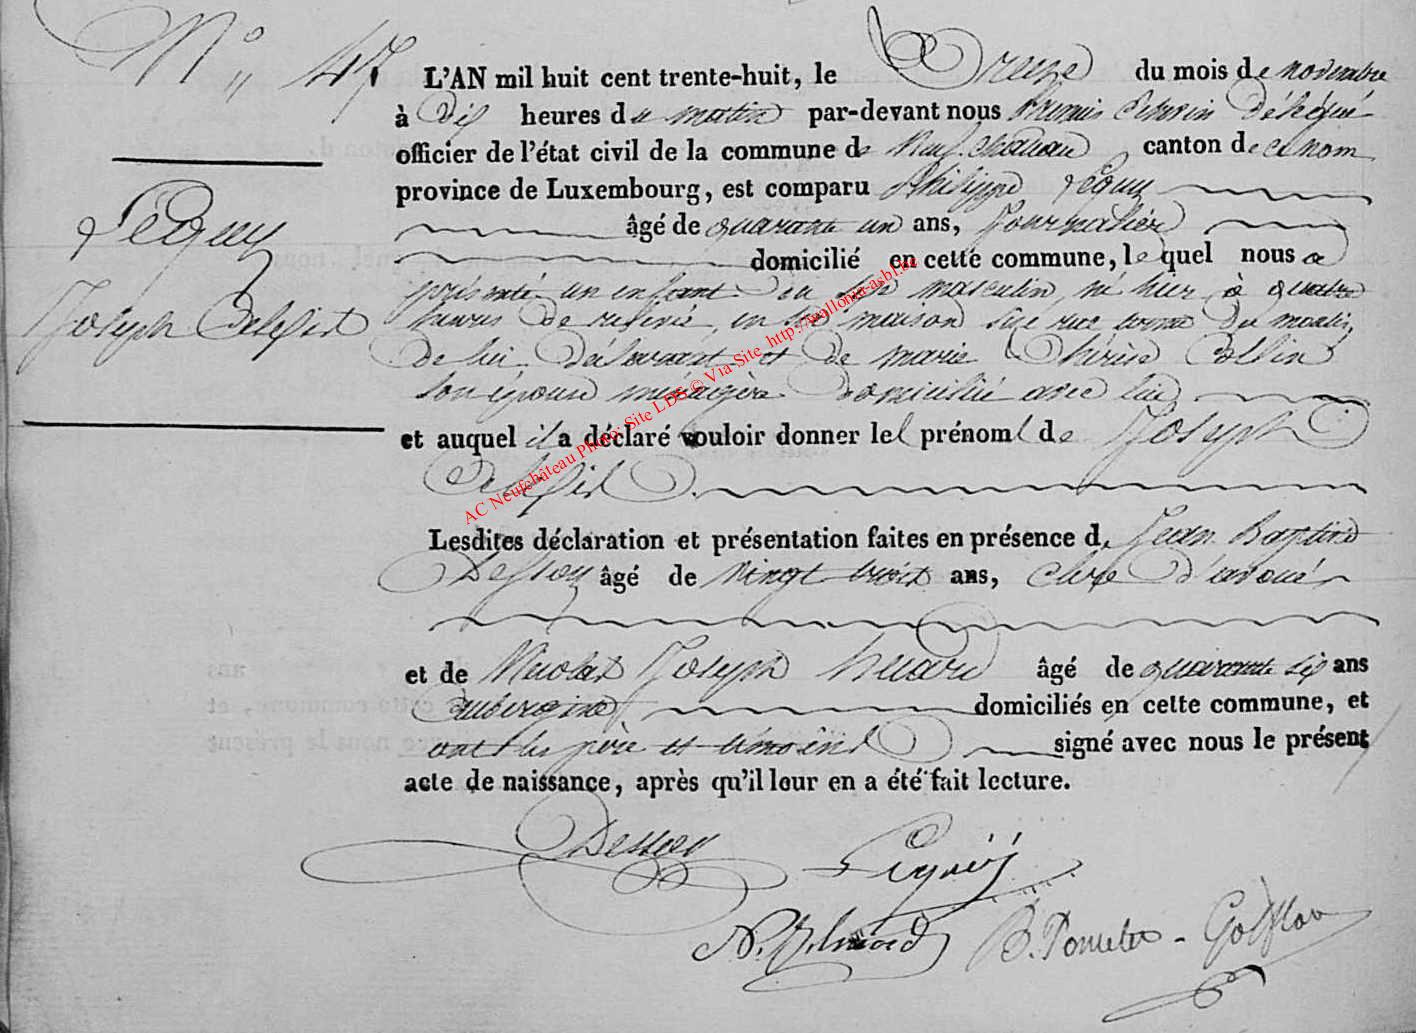 N° 47
L'AN mil huit cent trente-huit, le Treize du mois de novembre
à dix heures du matin par-devant nous premier Echevin Délégué
officier de l'état civil de la commune de Neufchateau, canton de ce nom
province de Luxembourg, est comparu Philippe Péquy
âgé de quarante un ans, Journalier
domicilié en cette commune, lequel nous a
présenté un enfant du sexe masculin, né hier, à quatre
heures de relevée, en sa maison sise rue du moulin,
de lui déclarant et de marie Thérèse Collin
son épouse ménagère domiciliée avec lui
et auquel il a déclaré vouloir donner le prénom de Joseph
Celestin
Lesdites déclaration et présentation faites en présence de Jean Baptiste
Dessoy âgé de vingt trois ans, clerc d'avoué
et de Nicolas Joseph huard âgé de quarante six ans
aubergiste domiciliés en cette commune, et
ont les père et témoins signé avec nous le présent
acte de naissance, après qu'il leur en a été fait lecture.
Péquy
Joseph Celestin
Dessoy Péquÿ
B. Poncelet -
AC Neufchâteau Photo: Site LDS © Via Site http://wallonia-asbl.be